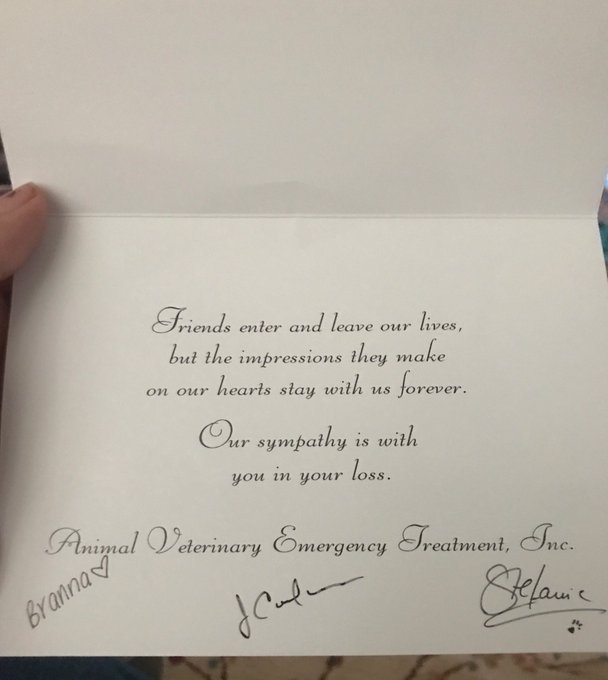 Friends enter and leave our lives,
but the impressions they make
on our hearts stay with us forever.
Our sympathy is with
you in your loss.
Animal Veterinary Emergency Treatment, Inc.
Branna
Stefanie